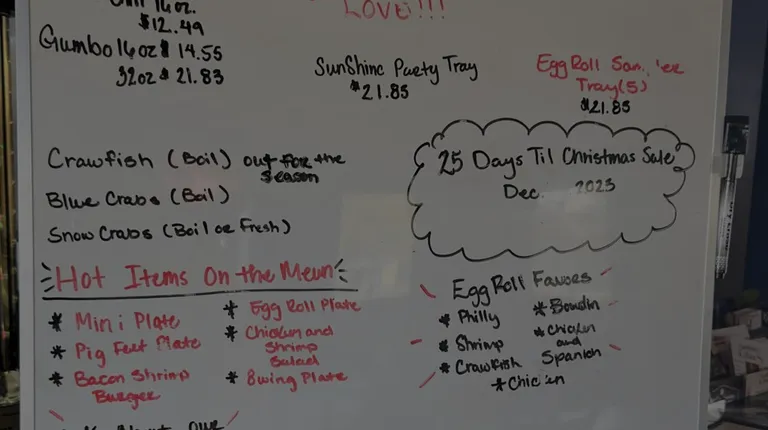 16oz.
$12.49
LOVE!!!
Gumbo 16oz $ 14.55
32oz $ 21.83
SunShine Party Tray
$21.85
Egg Roll
Tray(5)
$21.85
Crawfish (Boil) out for the
season
Blue Crabs (Boil)
Snow Crabs (Boil or Fresh)
25 Days Til Christmas Sale
Dec. 2023
Hot Items On the Meun
* Mini Plate
* Pig Feet Plate
* Bacon Shrimp
Burger
* Egg Roll Plate
* Chicken and
Shrimp
Salad
* 8wing Plate
Egg Roll Favors
* Philly
* Shrimp
* Crawfish
* Chicken
* Boudin
* Chicken
and
Spanish